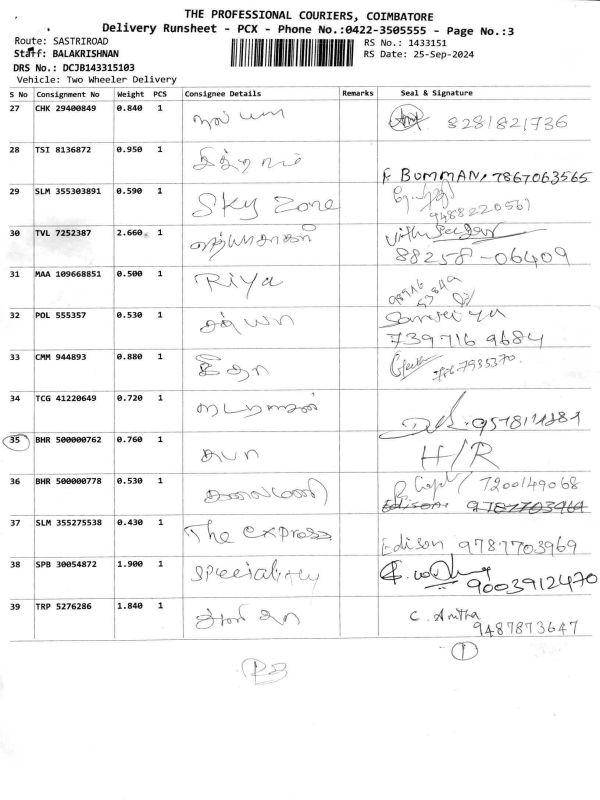 THE PROFESSIONAL COURIERS, COIMBATORE
Delivery Runsheet - PCX - Phone No.:0422-3505555 - Page No.:3
Route: SASTRIROAD
RS No.: 1433151
Staff: BALAKRISHNAN
RS Date: 25-Sep-2024
DRS No.: DCJB143315103
Vehicle: Two Wheeler Delivery
S No Consignment No Weight PCS Consignee Details Remarks Seal & Signature
27 CHK 29400849 0.840 1 8281821736
28 TSI 8136872 0.950 1 சித்ரா BUMMAN, 7867063565
29 SLM 355303891 0.590 1 Sky Zone 9488220561
30 TVL 7252387 2.660 1 வித்யாசாகர் 88258-06409
31 MAA 109668851 0.500 1 Riya
32 POL 555357 0.530 1 739 716 9684
33 CMM 944893 0.880 1 கீதா
34 TCG 41220649 0.720 1
35 BHR 500000762 0.760 1 சுபா H/R
36 BHR 500000778 0.530 1 கலைமணி 7200149068
Edison 9787703969
37 SLM 355275538 0.430 1 The express Edison 9787703969
38 SPB 30054872 1.900 1 Speciality 9003912470
39 TRP 5276286 1.840 1 C. Anitha
9487873647
1